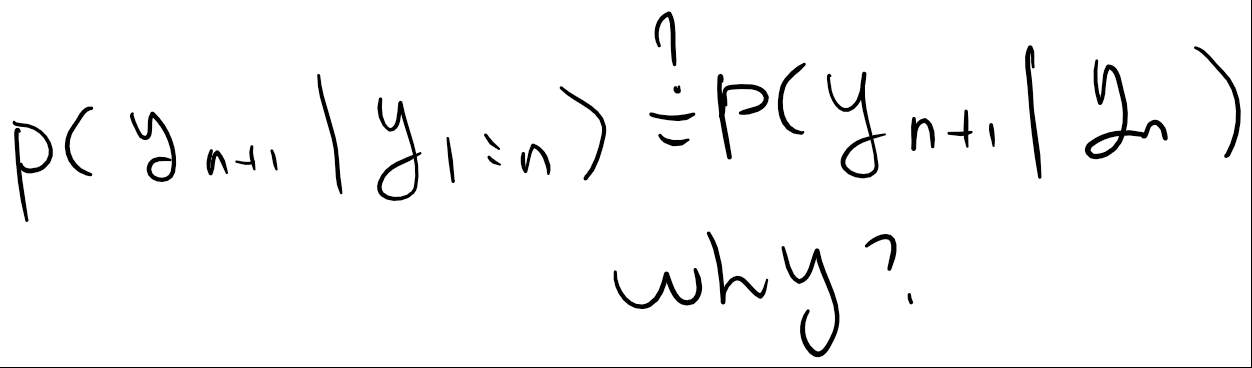 p(y_{n+1} | y_{1:n}) ?= p(y_{n+1} | y_n)
why?